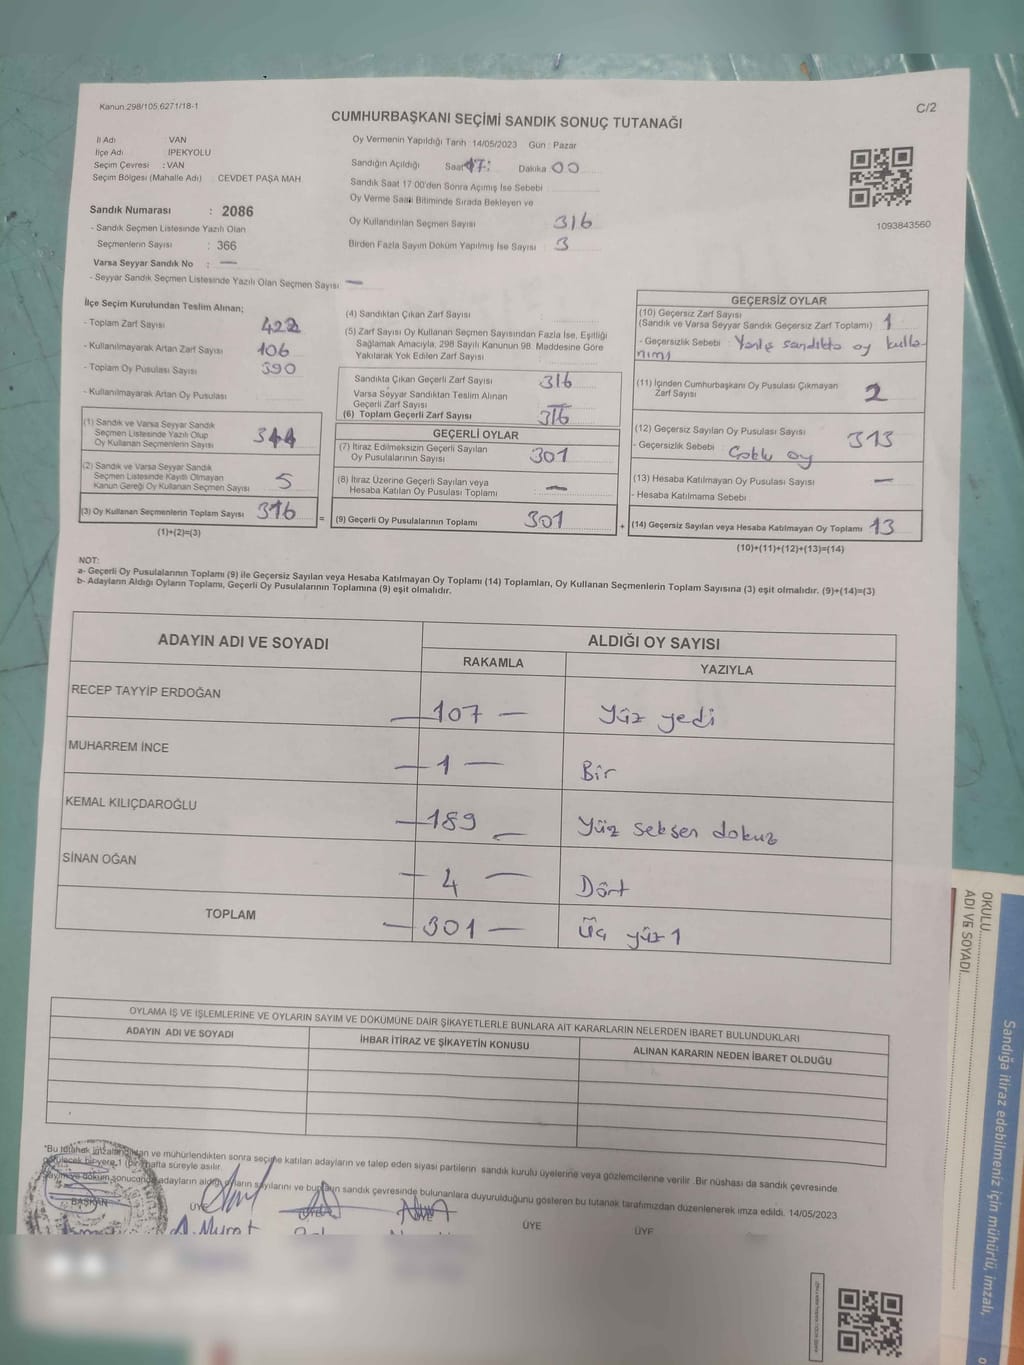 Kanun.298/105,6271/18-1
C/2
CUMHURBAŞKANI SEÇİMİ SANDIK SONUÇ TUTANAĞI
İl Adı : VAN
İlçe Adı : İPEKYOLU
Seçim Çevresi : VAN
Seçim Bölgesi (Mahalle Adı) : CEVDET PAŞA MAH.
Sandık Numarası : 2086
- Sandık Seçmen Listesinde Yazılı Olan
Seçmenlerin Sayısı : 366
Varsa Seyyar Sandık No : —
- Seyyar Sandık Seçmen Listesinde Yazılı Olan Seçmen Sayısı —
Oy Vermenin Yapıldığı Tarih : 14/05/2023 Gün : Pazar
Sandığın Açıldığı Saat 17: Dakika 00
Sandık Saat 17:00'den Sonra Açımış İse Sebebi
Oy Verme Saati Bitiminde Sırada Bekleyen ve
Oy Kullandırılan Seçmen Sayısı 316
Birden Fazla Sayım Döküm Yapılmış İse Sayısı 3
1093843560
İlçe Seçim Kurulundan Teslim Alınan;
- Toplam Zarf Sayısı 422
- Kullanılmayarak Artan Zarf Sayısı 106
- Toplam Oy Pusulası Sayısı 390
- Kullanılmayarak Artan Oy Pusulası
(1) Sandık ve Varsa Seyyar Sandık
Seçmen Listesinde Yazılı Olup
Oy Kullanan Seçmenlerin Sayısı
(2) Sandık ve Varsa Seyyar Sandık
Seçmen Listesinde Kayıtlı Olmayan
Kanun Gereği Oy Kullanan Seçmen Sayısı 5
(3) Oy Kullanan Seçmenlerin Toplam Sayısı 316
(1)+(2)=(3)
=
(4) Sandıktan Çıkan Zarf Sayısı
(5) Zarf Sayısı Oy Kullanan Seçmen Sayısından Fazla İse, Eşitliği
Sağlamak Amacıyla, 298 Sayılı Kanunun 98. Maddesine Göre
Yakılarak Yok Edilen Zarf Sayısı
Sandıkta Çıkan Geçerli Zarf Sayısı 316
Varsa Seyyar Sandıktan Teslim Alınan
Geçerli Zarf Sayısı —
(6) Toplam Geçerli Zarf Sayısı 316
GEÇERLİ OYLAR
(7) İtiraz Edilmeksizin Geçerli Sayılan
Oy Pusulalarının Sayısı 301
(8) İtiraz Üzerine Geçerli Sayılan veya
Hesaba Katılan Oy Pusulası Toplamı —
(9) Geçerli Oy Pusulalarının Toplamı 301
+
GEÇERSİZ OYLAR
(10) Geçersiz Zarf Sayısı
(Sandık ve Varsa Seyyar Sandık Geçersiz Zarf Toplamı) 1
- Geçersizlik Sebebi : Yanlış sandıkta oy kulla-
nımı
(11) İçinden Cumhurbaşkanı Oy Pusulası Çıkmayan
Zarf Sayısı 2
(12) Geçersiz Sayılan Oy Pusulası Sayısı 313
- Geçersizlik Sebebi : Çoklu oy
(13) Hesaba Katılmayan Oy Pusulası Sayısı —
- Hesaba Katılmama Sebebi
(14) Geçersiz Sayılan veya Hesaba Katılmayan Oy Toplamı 13
(10)+(11)+(12)+(13)=(14)
NOT:
a- Geçerli Oy Pusulalarının Toplamı (9) ile Geçersiz Sayılan veya Hesaba Katılmayan Oy Toplamı (14) Toplamları, Oy Kullanan Seçmenlerin Toplam Sayısına (3) eşit olmalıdır. (9)+(14)=(3)
b- Adayların Aldığı Oyların Toplamı, Geçerli Oy Pusulalarının Toplamına (9) eşit olmalıdır.
ADAYIN ADI VE SOYADI
ALDIĞI OY SAYISI
RAKAMLA YAZIYLA
RECEP TAYYİP ERDOĞAN — 107 — Yüz yedi
MUHARREM İNCE — 1 — Bir
KEMAL KILIÇDAROĞLU — 189 — Yüz seksen dokuz
SİNAN OĞAN — 4 — Dört
TOPLAM — 301 — Üç yüz 1
OYLAMA İŞ VE İŞLEMLERİNE VE OYLARIN SAYIM VE DÖKÜMÜNE DAİR ŞİKAYETLERLE BUNLARA AİT KARARLARIN NELERDEN İBARET BULUNDUKLARI
ADAYIN ADI VE SOYADI İHBAR İTİRAZ VE ŞİKAYETİN KONUSU ALINAN KARARIN NEDEN İBARET OLDUĞU
"Bu ve mühürlendikten sonra seçime katılan adayların ve talep eden siyasi partilerin sandık kurulu üyelerine veya gözlemcilerine verilir. Bir nüshası da sandık çevresinde
hafta süreyle asılır.
adayların sayılarını ve sandık çevresinde bulunanlara duyurulduğunu gösteren bu tutanak tarafımızdan düzenlenerek imza edildi. 14/05/2023
BAŞKAN ÜYE ÜYE ÜYE ÜYE
A. Murat
OKULU
ADI VE SOYADI
Sandığa itiraz edebilmeniz için mühürlü, imzalı,